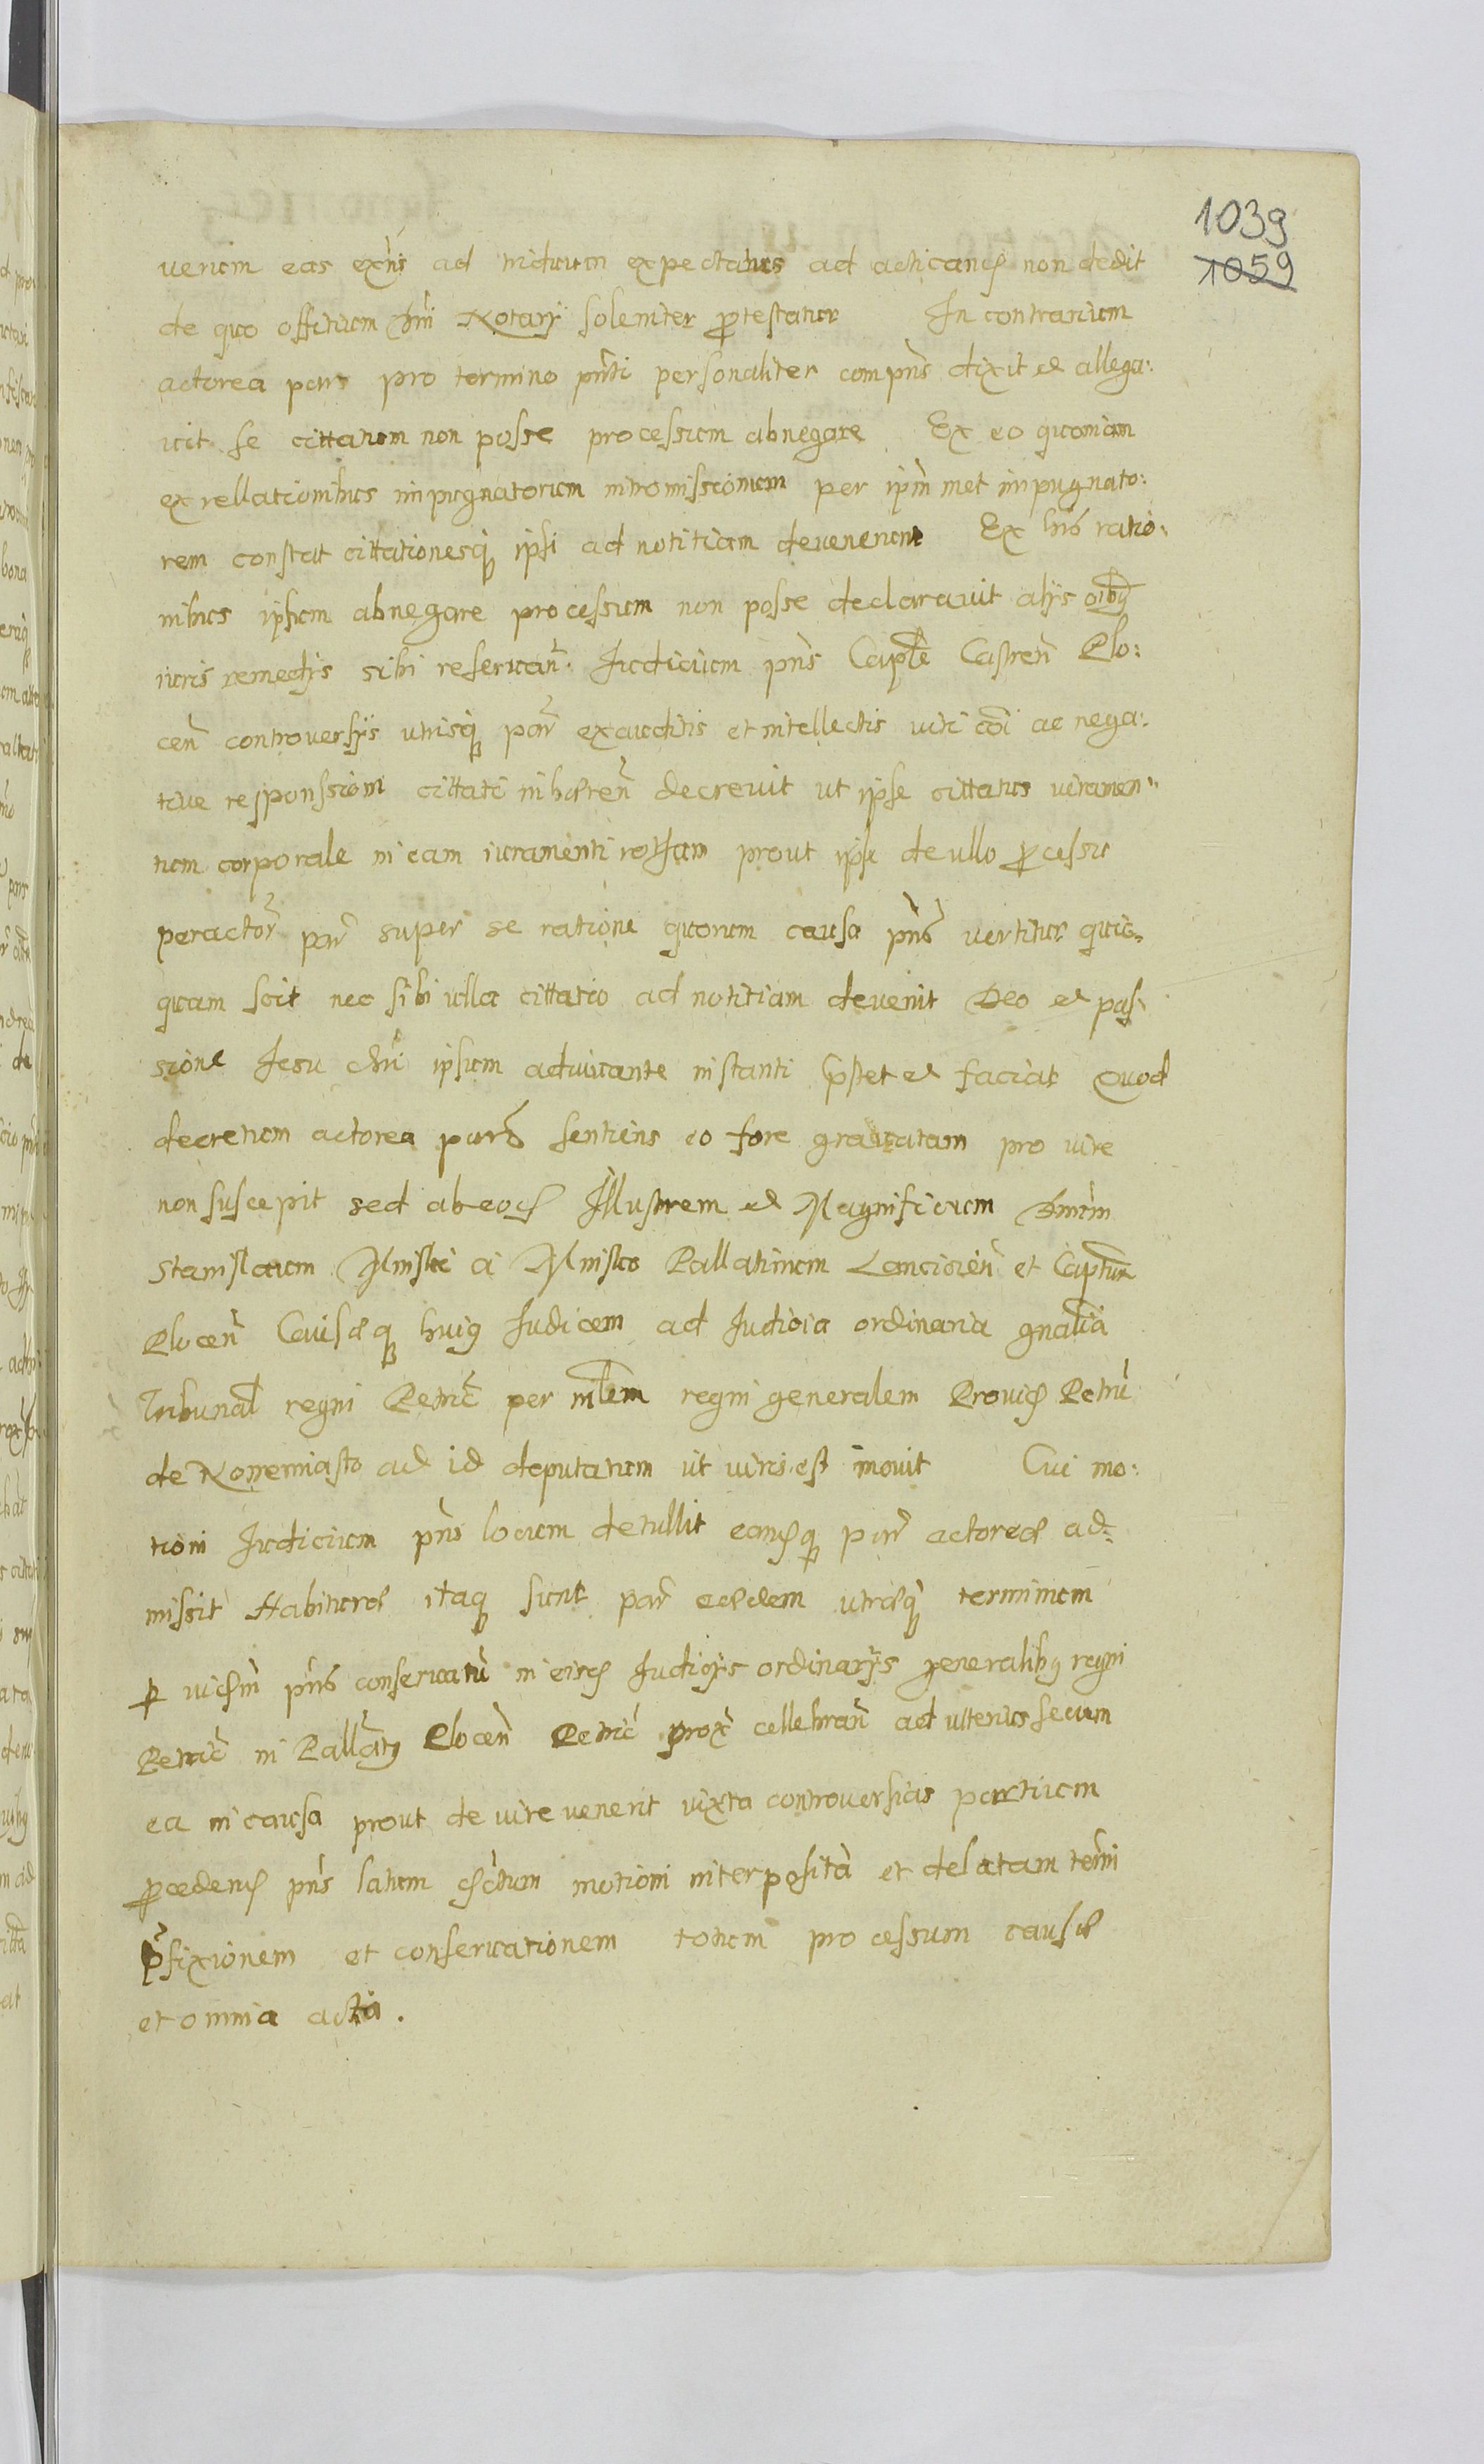 1039
1059
uerum eas exñs ad triduum expectatus ad acticand non dedit
de quo offitium dni Notarÿ solemiter ptestatur In contrarium
actorea pars pro termino pñti personaliter compñs dixit et allega:
uit se cittatum non posse processum abnegare Ex eo quoniam
ex rellationibus impugnatorum intromissionum per ipm met impugnato:
rem constat cittationesq ipsi ad notitiam deuenerunt Ex his ratio:
nibus ipsum abnegare processum non posse declarauit alÿs oibus
iuris remedÿs sibi reseruañ. Iudicium pñs Caple Castreñ Plo:
ceñ controuersÿs utrisq par exauditis et intellectis uti coi ac nega:
tiue responssioni cittati inhereñ decreuit ut ipse cittatus iuramen:
tum corporale in eam iuramenti rottam prout ipse de ullo pcessu
peractor par super se ratione quorum causa pñs uertitur quic:
quam scit nec sibi ulla cittatio ad notitiam deuenit Deo et pas:
sione Jesu chri ipsum adiuuante instanti pstet et faciat Quod
decretum actorea pars sentiens eo fore grauatam pro iure
non suscepit sed ab eod Illustrem et Magnificum Dnum
Stanislaum Minski a Minsko Pallatinum Lancicień et Captum
Ploceñ Causæq huius Judicem ad Judicia ordinaria gnalia
Tribunal regni Petric per mlem regni generalem Prouid Petrũ
de Nonemiasto ad id deputatum ut iuris est mouit Cui mo:
tioni Iudicium pñs locum detullit eamq par actoreæ ad:
missit Habituræ itaq sunt par eædem utræq terminum
p uicsm pñs conseruatũ in eisd Iudicÿs ordinarÿs generalibus regni
Petric in Pallatu Ploceñ Petric prox cellebrañ ad ulterius secum
ea in causa prout de iure uenerit iuxta controuersias partium
pcedend pñs latum motioni interposita et delatam termi
pfixionem et conseruationem totum processum causæ
et omnia acta.